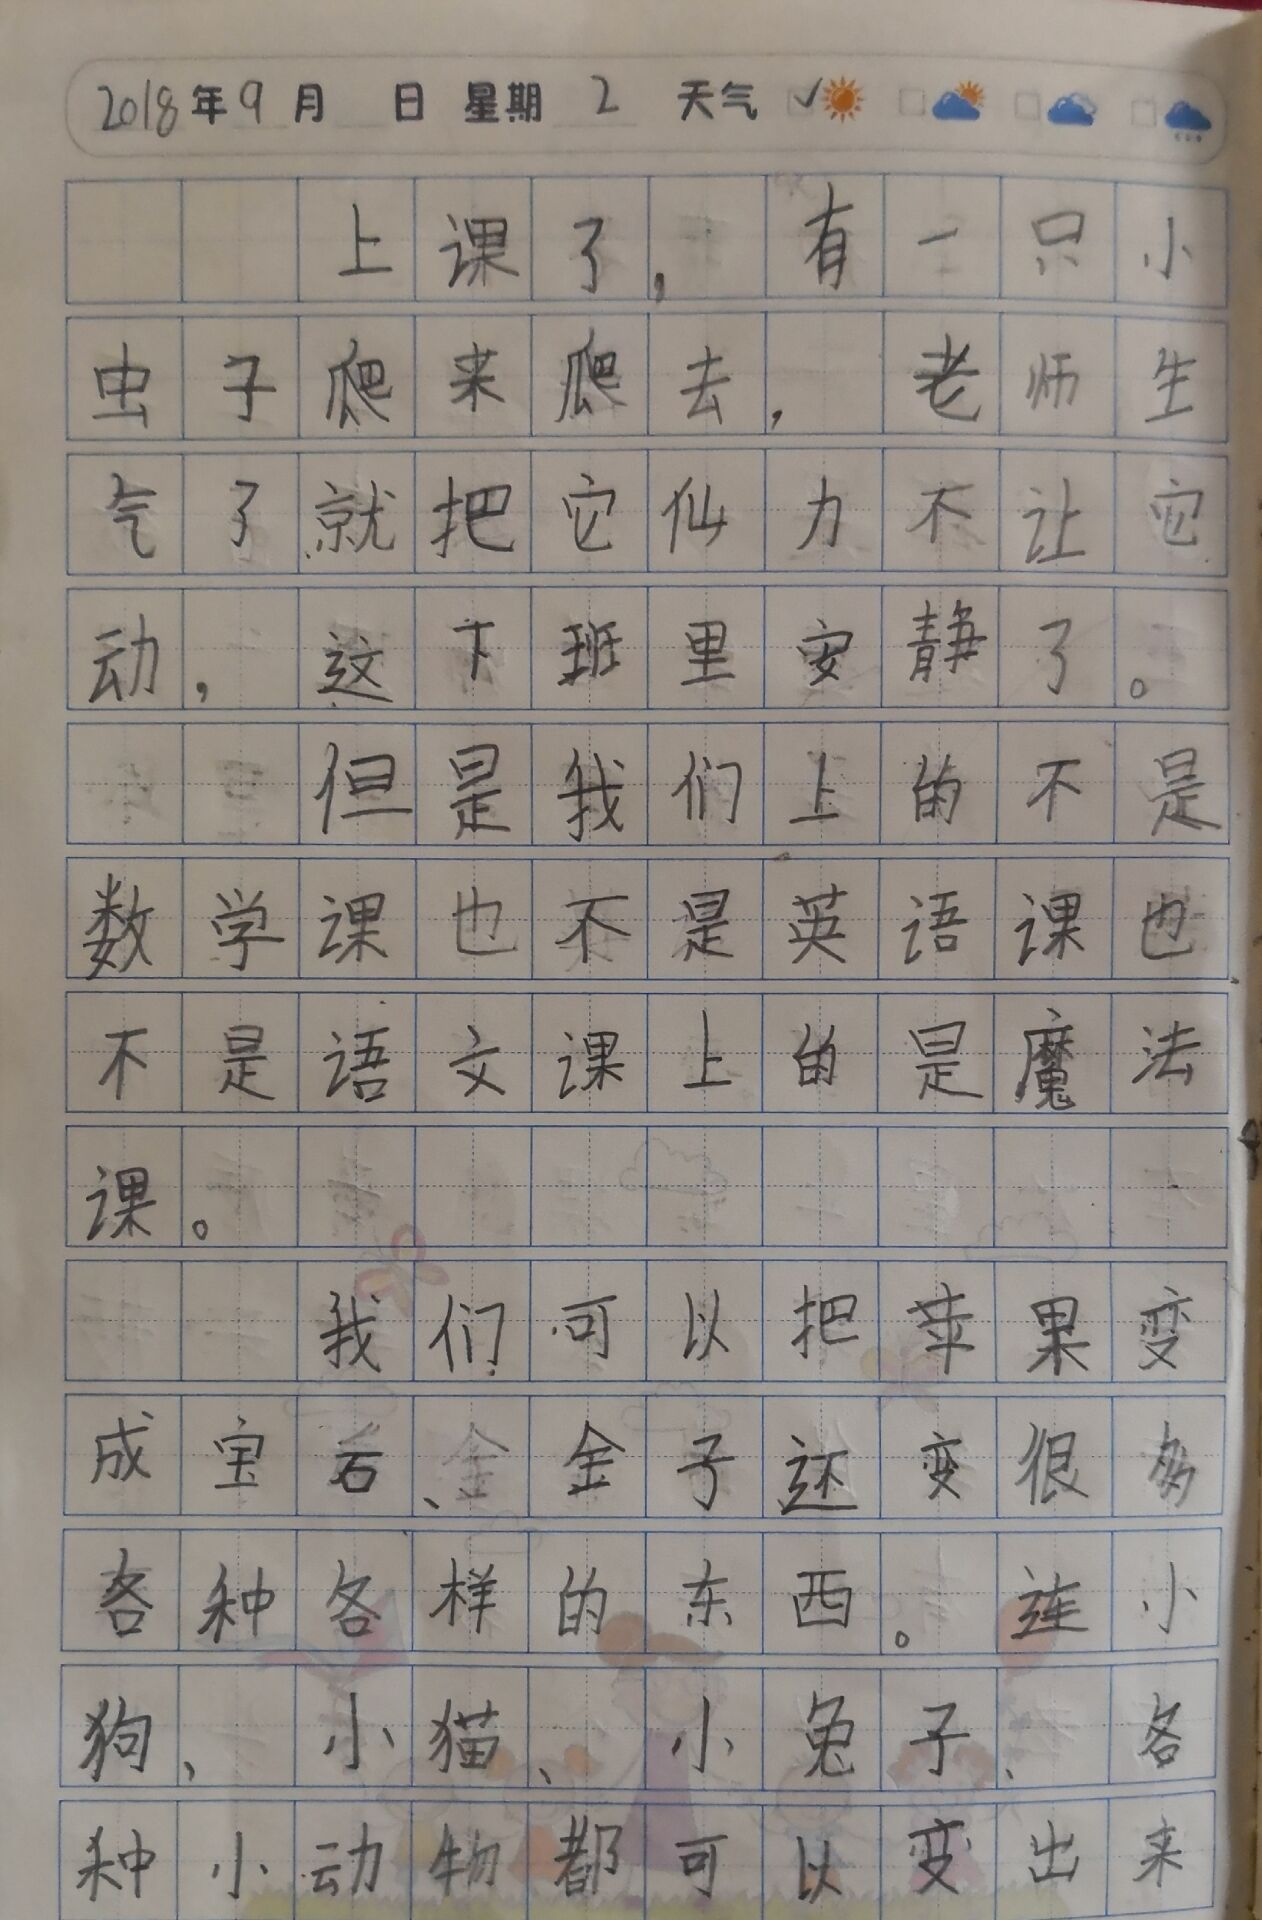 2018年9月 日 星期 2 天气 ✓
上课了，有一只小
虫子爬来爬去，老师生
气了就把它仙力不让它
动，这下班里安静了。
但是我们上的不是
数学课也不是英语课也
不是语文课上的是魔法
课。
我们可以把苹果变
成宝石、金子还变很多
各种各样的东西。连小
狗、小猫、小兔子、各
种小动物都可以变出来